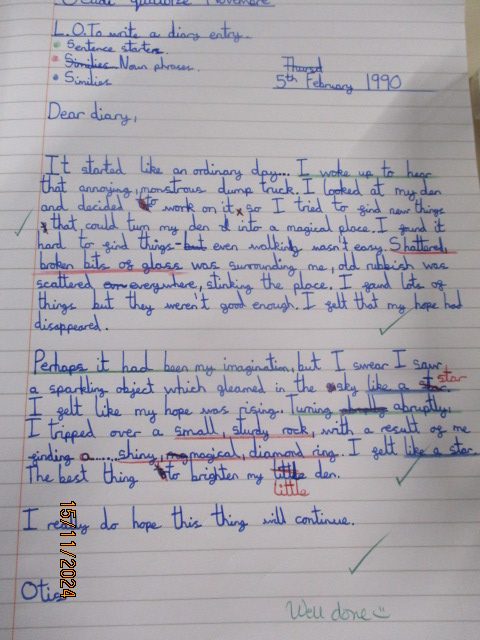 L.O.To write a diary entry.
• Sentence starters.
• Similies Noun phrases.
• Similies
Thursd
5th February 1990
Dear diary,
It started like an ordinary day... I woke up to hear
that annoying, monstrous dump truck. I looked at my den
and decided to work on it, so I tried to find new things
that, could turn my den into a magical place. I found it
hard to find things - but even walking wasn't easy. Shattered,
broken bits of glass was surrounding me, old rubbish was
scattered everywhere, stinking the place. I found lots of
things but they weren't good enough. I felt that my hope had
disappeared.
Perhaps it had been my imagination, but I swear I saw
a sparkling object which gleamed in the sky like a star
I felt like my hope was rising. Turning abruptly,
I tripped over a small, sturdy rock, with a result of me
finding a...... shiny, magical, diamond ring.. I felt like a star.
The best thing to brighten my little den.
little
I really do hope this thing will continue.
Otis
15/11/2024
Well done